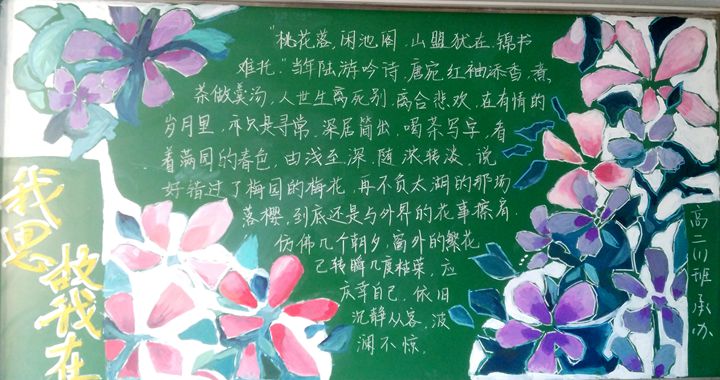 "桃花落,闲池阁.山盟犹在,锦书
难托."当年陆游吟诗,唐宛红袖添香,煮
茶做羹汤,人世生离死别,离合悲欢,在有情的
岁月里,亦只是寻常.深居简出,喝茶写字,看
着满园的春色,由浅至深,随浓转淡,说
好错过了梅园的梅花,再不负太湖的那场
落樱,到底还是与外界的花事擦肩.
仿佛几个朝夕,窗外的繁花
已转瞬几度枯荣,应
庆幸自己,依旧
沉静从容,波
澜不惊.
我思
故我在
高二(1)班承办